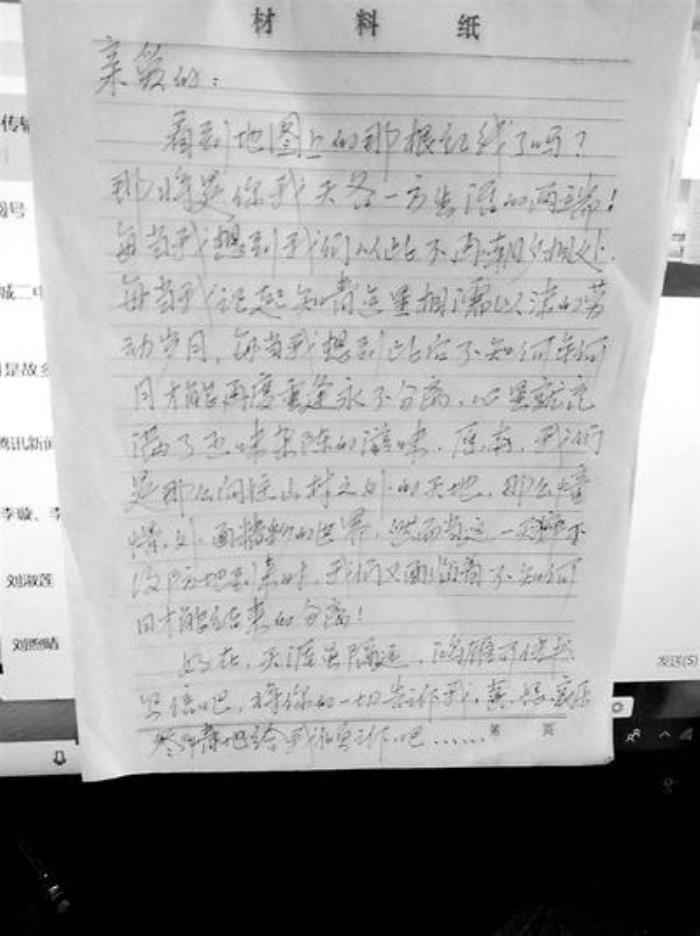 材料纸
亲爱的：
看到地图上的那根红线了吗？
那将是你我天各一方生活的两端！
每当我想到我们从此不再朝夕相处，
每当我记起知青这里相濡以沫的劳
动岁月，每当我想到此后不知何年何
月才能再度重逢永不分离，心里就充
满了五味杂陈的滋味。原本，我们
是那么向往山村之外的天地，那么憧
憬外面的世界，然而当这一天猝不
及防地到来时，我们又面临着不知何
日才能结束的分离！
好在，天涯虽隔远，鸿雁可传书
吧，将你的一切告诉我，喜
地给我吧……
第 页
传输
号
城二中
是故乡
腾讯新闻
李璇、李
刘淑莲
刘晴
发送(S)